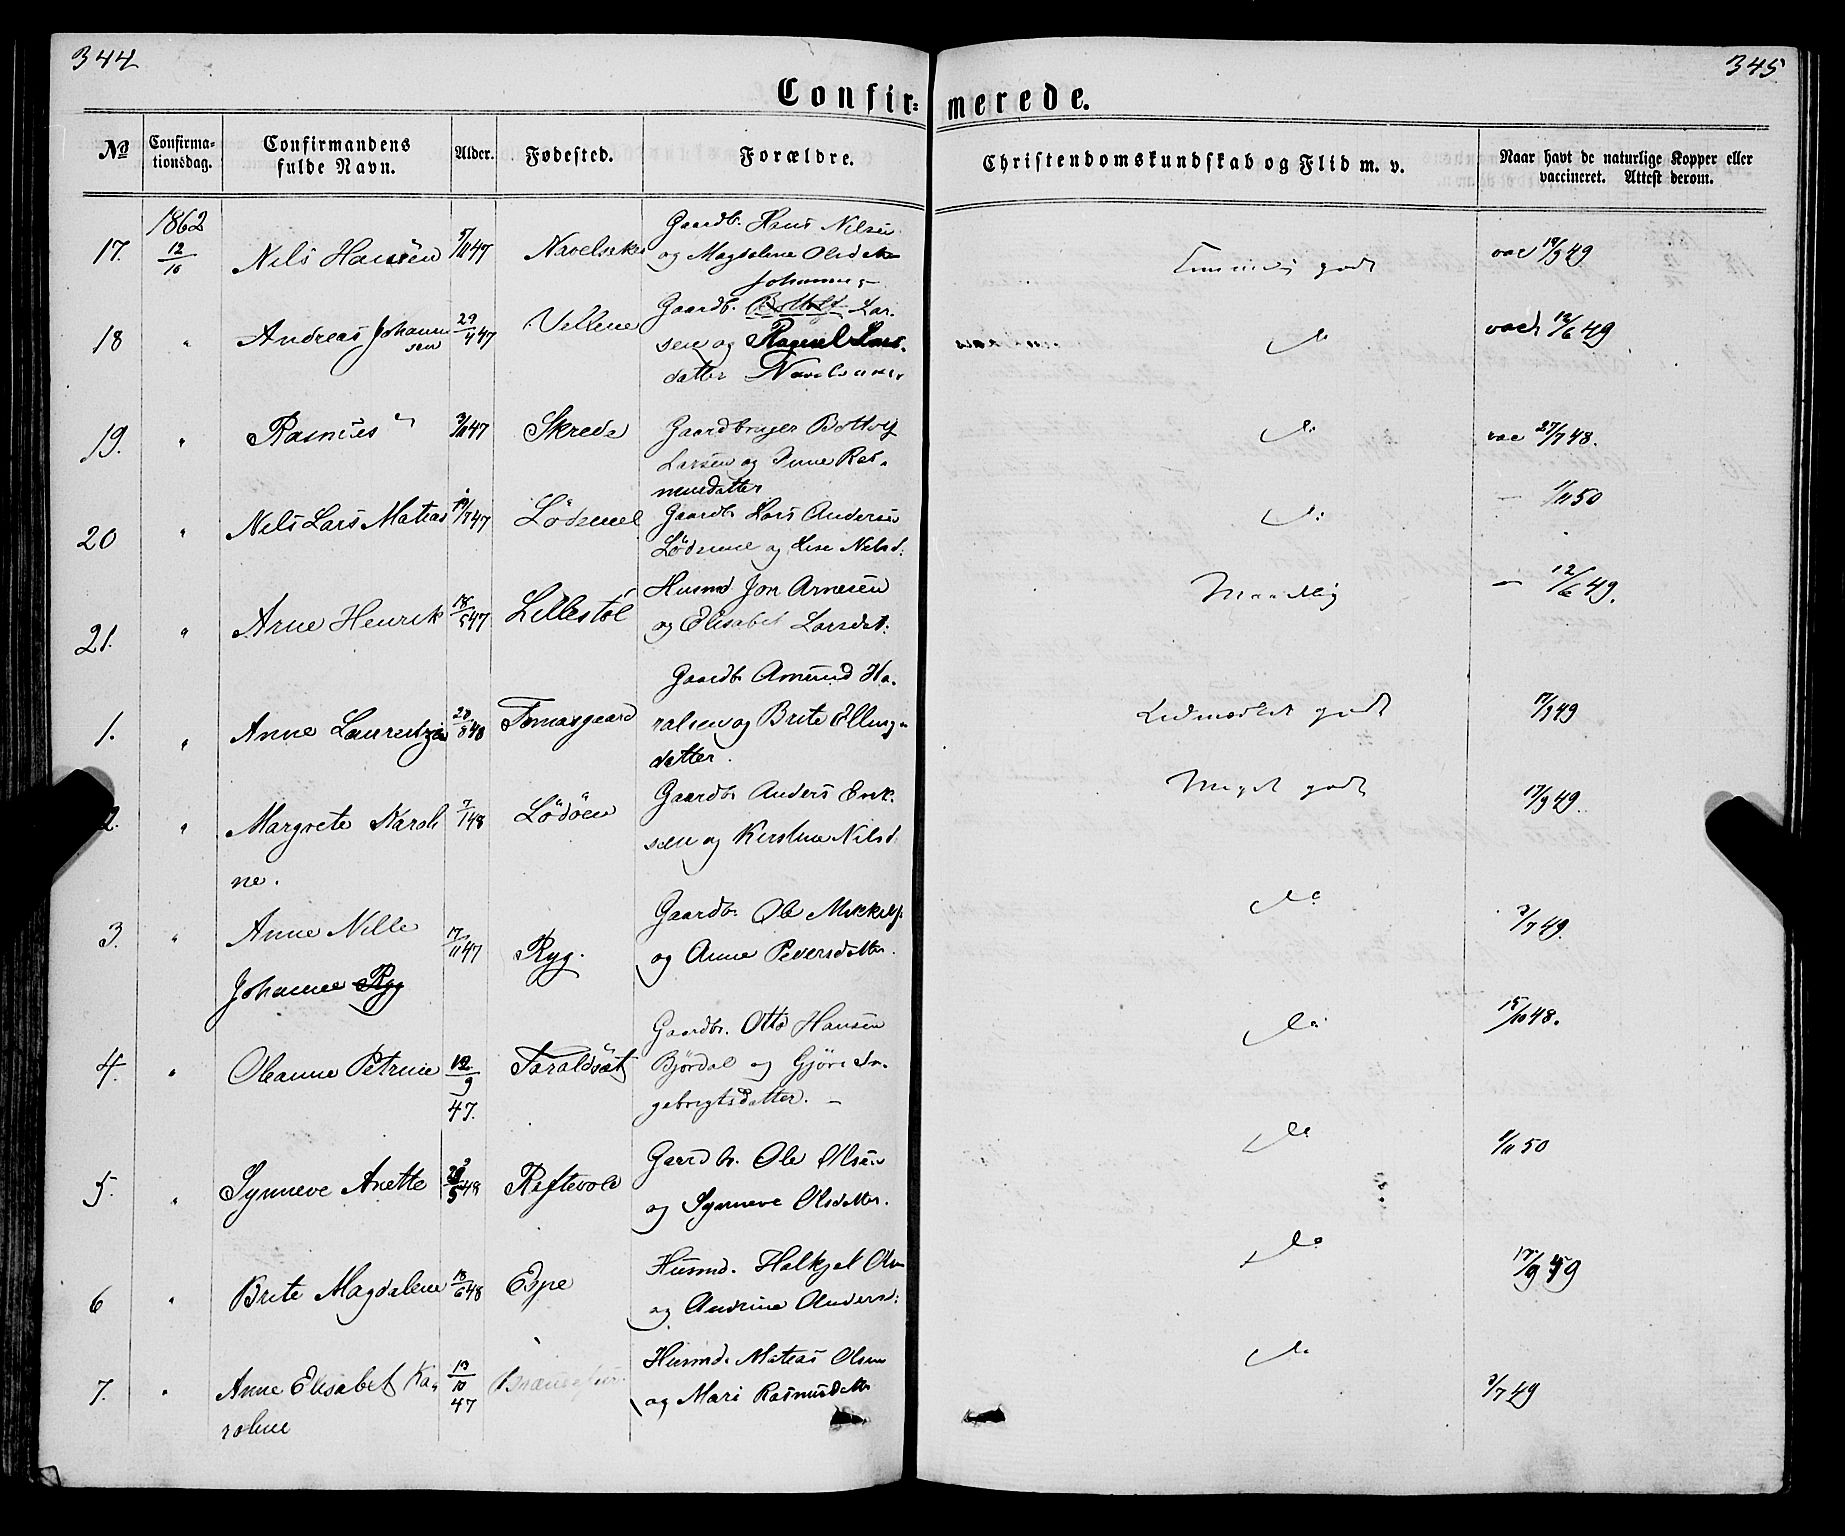 344
345
Confir- merede.
No
Confirma-
tionsdag.
Confirmandens
fulde Navn.
Alder.
Fødested.
Forældre.
Christendomskundskab og Flid m. v.
Naar havt de naturlige Kopper eller
vaccineret. Attest derom.
1862
17. 12/10 Nils Hansen 47 Navelsaker
Gaardb. Hans Nilsen
og Magdalene
Johannes
godt
vac 19/9 49
18 " Andreas Johann
sen
29/4 47 Vellene
Gaardb. Bottolf Lar-
sen og Ragnel Lars-
datter
do
vac 12/6 49
19. " Rasmus 47 Skrede
Gaardbruger Bottolf
Larsen og Inne Ras-
musdatter
do
vac 27/7 48.
20 " Nils Lars Matias 19/7 47 Lödemel
Gaardb. Lars Andersen
og Nilsd:
do
— 1/11 50
21. " Arne Henrik 18/5 47 Lillestöl
Husmd Jon Arnesen
og Elisabet Larsdat:
Maadelig
— 12/6 49.
1. " Anne Laurentze 48 Tomasgaard
Gaardb. Amund Ha-
ralsen og Brite Elling-
datter.
godt
17/9 49
2. " Margrete Karoli
ne.
7/1 48 Lödöen
Gaardb. Anders Erik-
sen og Kerstine Nilsd
Meget godt
17/9 49.
3. " Anne Nille
Johanne Ryg
17/11 47 Ryg.
Gaardb. Ole Mikkels
og Anne Pedersdatter.
do
3/7 49.
4. " Oleanne Petrine 12/9
47.
Taraldsæt
Gaardbr. Otto Hansen
Bjørdal og Gjöre In-
gebrigtsdatter. —
do
15/10 48.
5. " Synneve Anette 48 Reftevold
Gaardbr. Ole Olsen
og Synneve Olsdatter.
do
1/11 50
6 " Brite Magdalene 18/6 48 Espe
Husmd. Halkjel Olsen
og Andrine Andersd:
do
17/9 49
7. " Anne Elisabet Ka-
roline
13/10
47
Husmd. Matias Olsen
og Mari Rasmusdatter
do
3/7 49